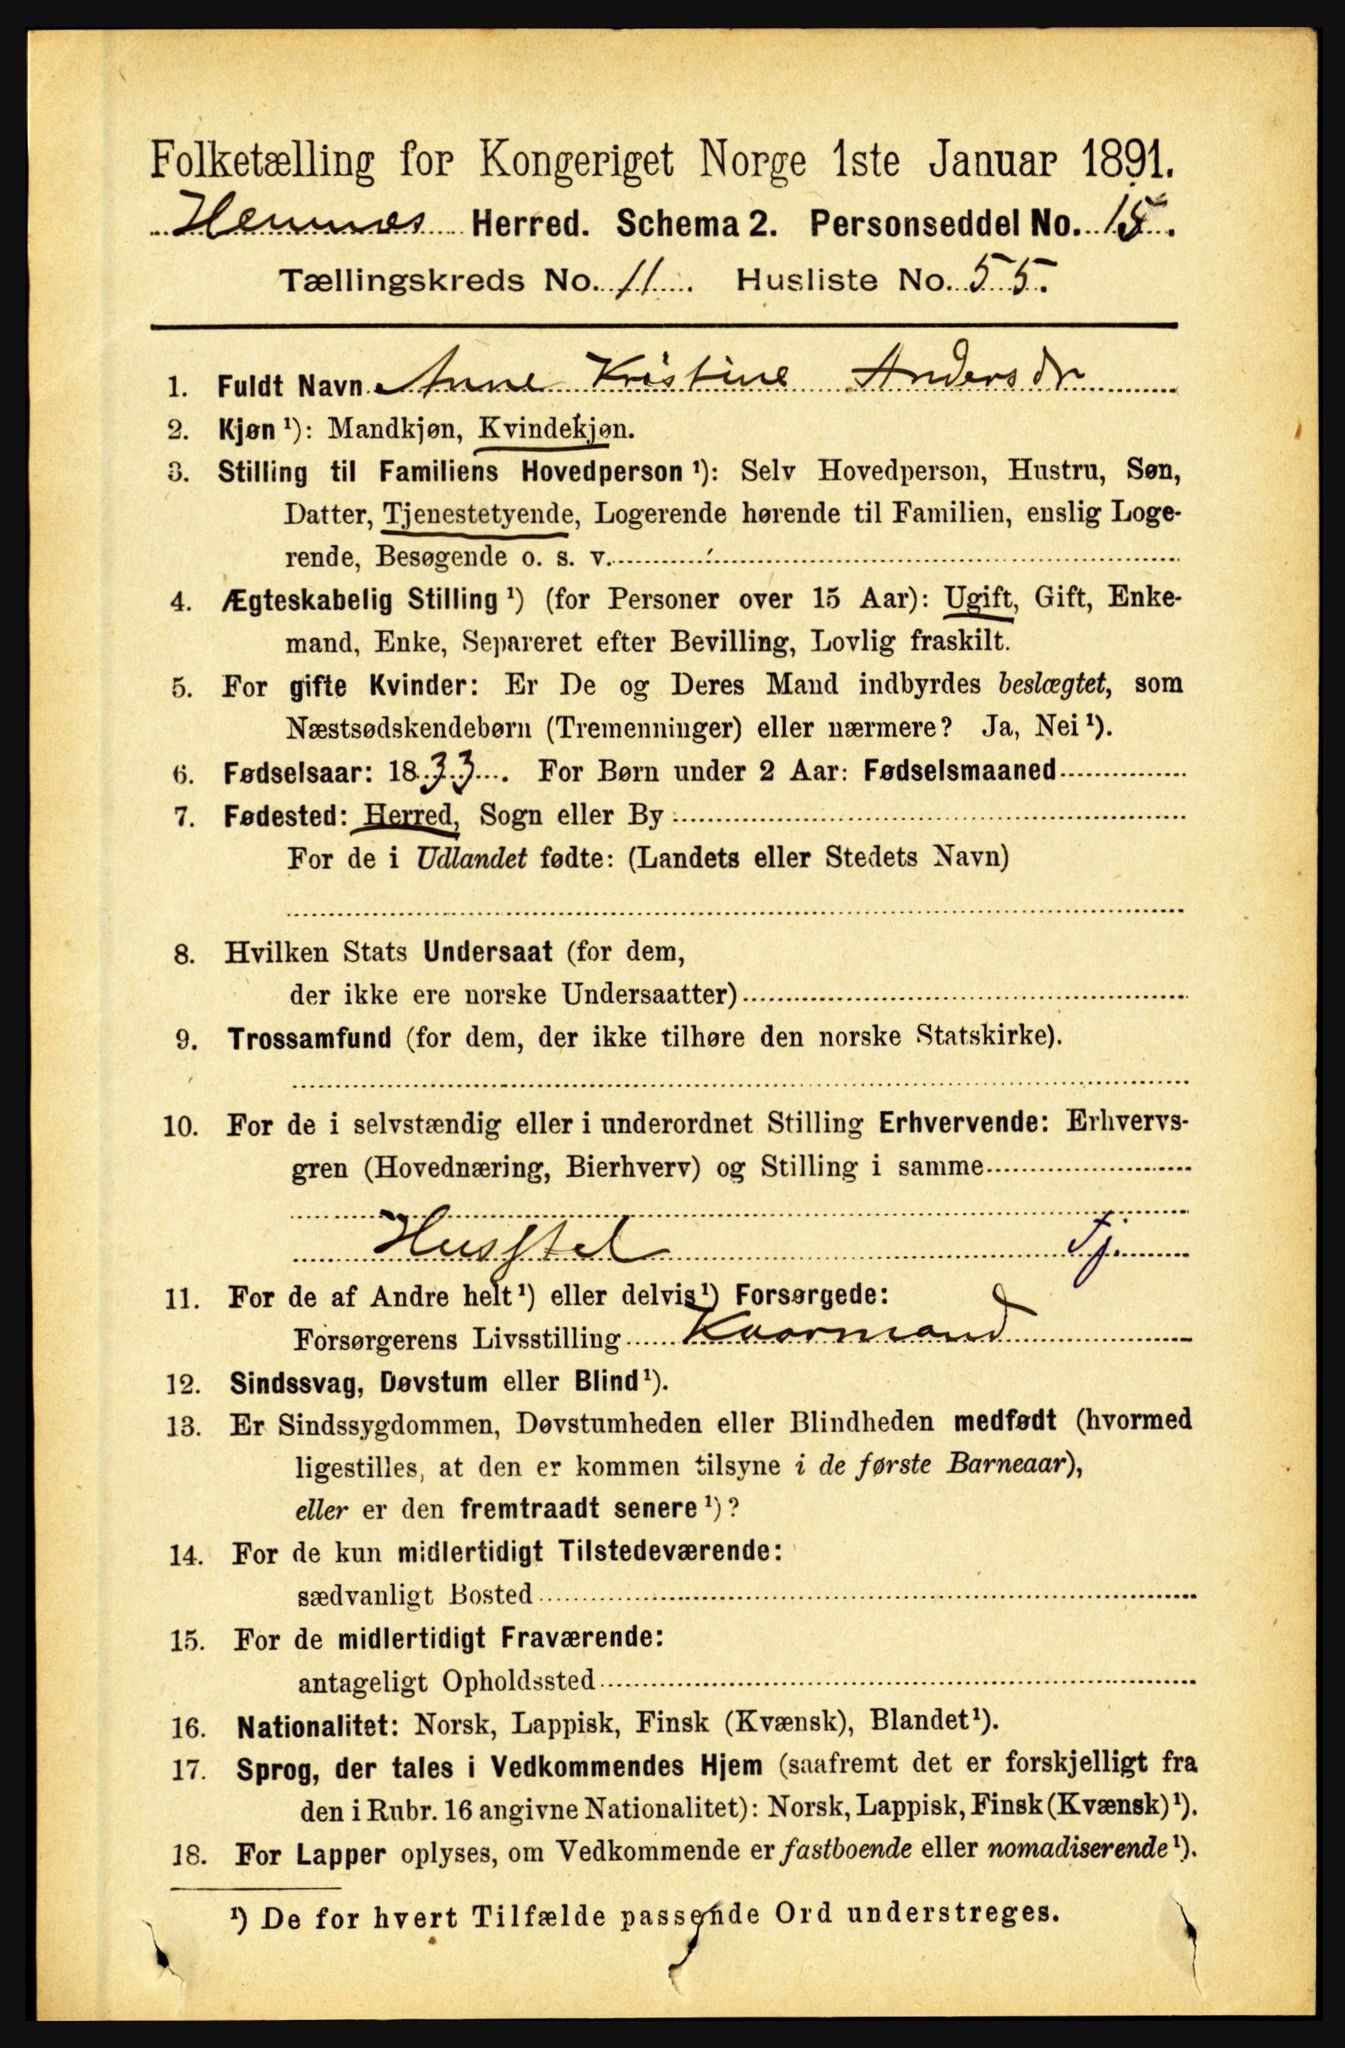 Folketælling for Kongeriget Norge 1ste Januar 1891.
Hemnes Herred. Schema 2. Personseddel No. 15.
Tællingskreds No. 11. Husliste No. 55.
1. Fuldt Navn Anne Kristine Andersdr
2. Kjøn ¹): Mandkjøn, Kvindekjøn.
3. Stilling til Familiens Hovedperson ¹): Selv Hovedperson, Hustru, Søn,
Datter, Tjenestetyende, Logerende hørende til Familien, enslig Loge-
rende, Besøgende o. s. v.
4. Ægteskabelig Stilling ¹) (for Personer over 15 Aar): Ugift, Gift, Enke-
mand, Enke, Separeret efter Bevilling, Lovlig fraskilt.
5. For gifte Kvinder: Er De og Deres Mand indbyrdes beslægtet, som
Næstsødskendebørn (Tremenninger) eller nærmere? Ja, Nei ¹).
6. Fødselsaar: 1833. For Børn under 2 Aar: Fødselsmaaned
7. Fødested: Herred, Sogn eller By
For de i Udlandet fødte: (Landets eller Stedets Navn)
8. Hvilken Stats Undersaat (for dem,
der ikke ere norske Undersaatter)
9. Trossamfund (for dem, der ikke tilhøre den norske Statskirke).
10. For de i selvstændig eller i underordnet Stilling Erhvervende: Erhvervs-
gren (Hovednæring, Bierhverv) og Stilling i samme
Husstel Tj.
11. For de af Andre helt ¹) eller delvis ¹) Forsørgede:
Forsørgerens Livsstilling Kaarmand
12. Sindssvag, Døvstum eller Blind ¹).
13. Er Sindssygdommen, Døvstumheden eller Blindheden medfødt (hvormed
ligestilles, at den er kommen tilsyne i de første Barneaar),
eller er den fremtraadt senere ¹)?
14. For de kun midlertidigt Tilstedeværende:
sædvanligt Bosted
15. For de midlertidigt Fraværende:
antageligt Opholdssted
16. Nationalitet: Norsk, Lappisk, Finsk (Kvænsk), Blandet ¹).
17. Sprog, der tales i Vedkommendes Hjem (saafremt det er forskjelligt fra
den i Rubr. 16 angivne Nationalitet): Norsk, Lappisk, Finsk (Kvænsk) ¹).
18. For Lapper oplyses, om Vedkommende er fastboende eller nomadiserende ¹).
¹) De for hvert Tilfælde passende Ord understreges.